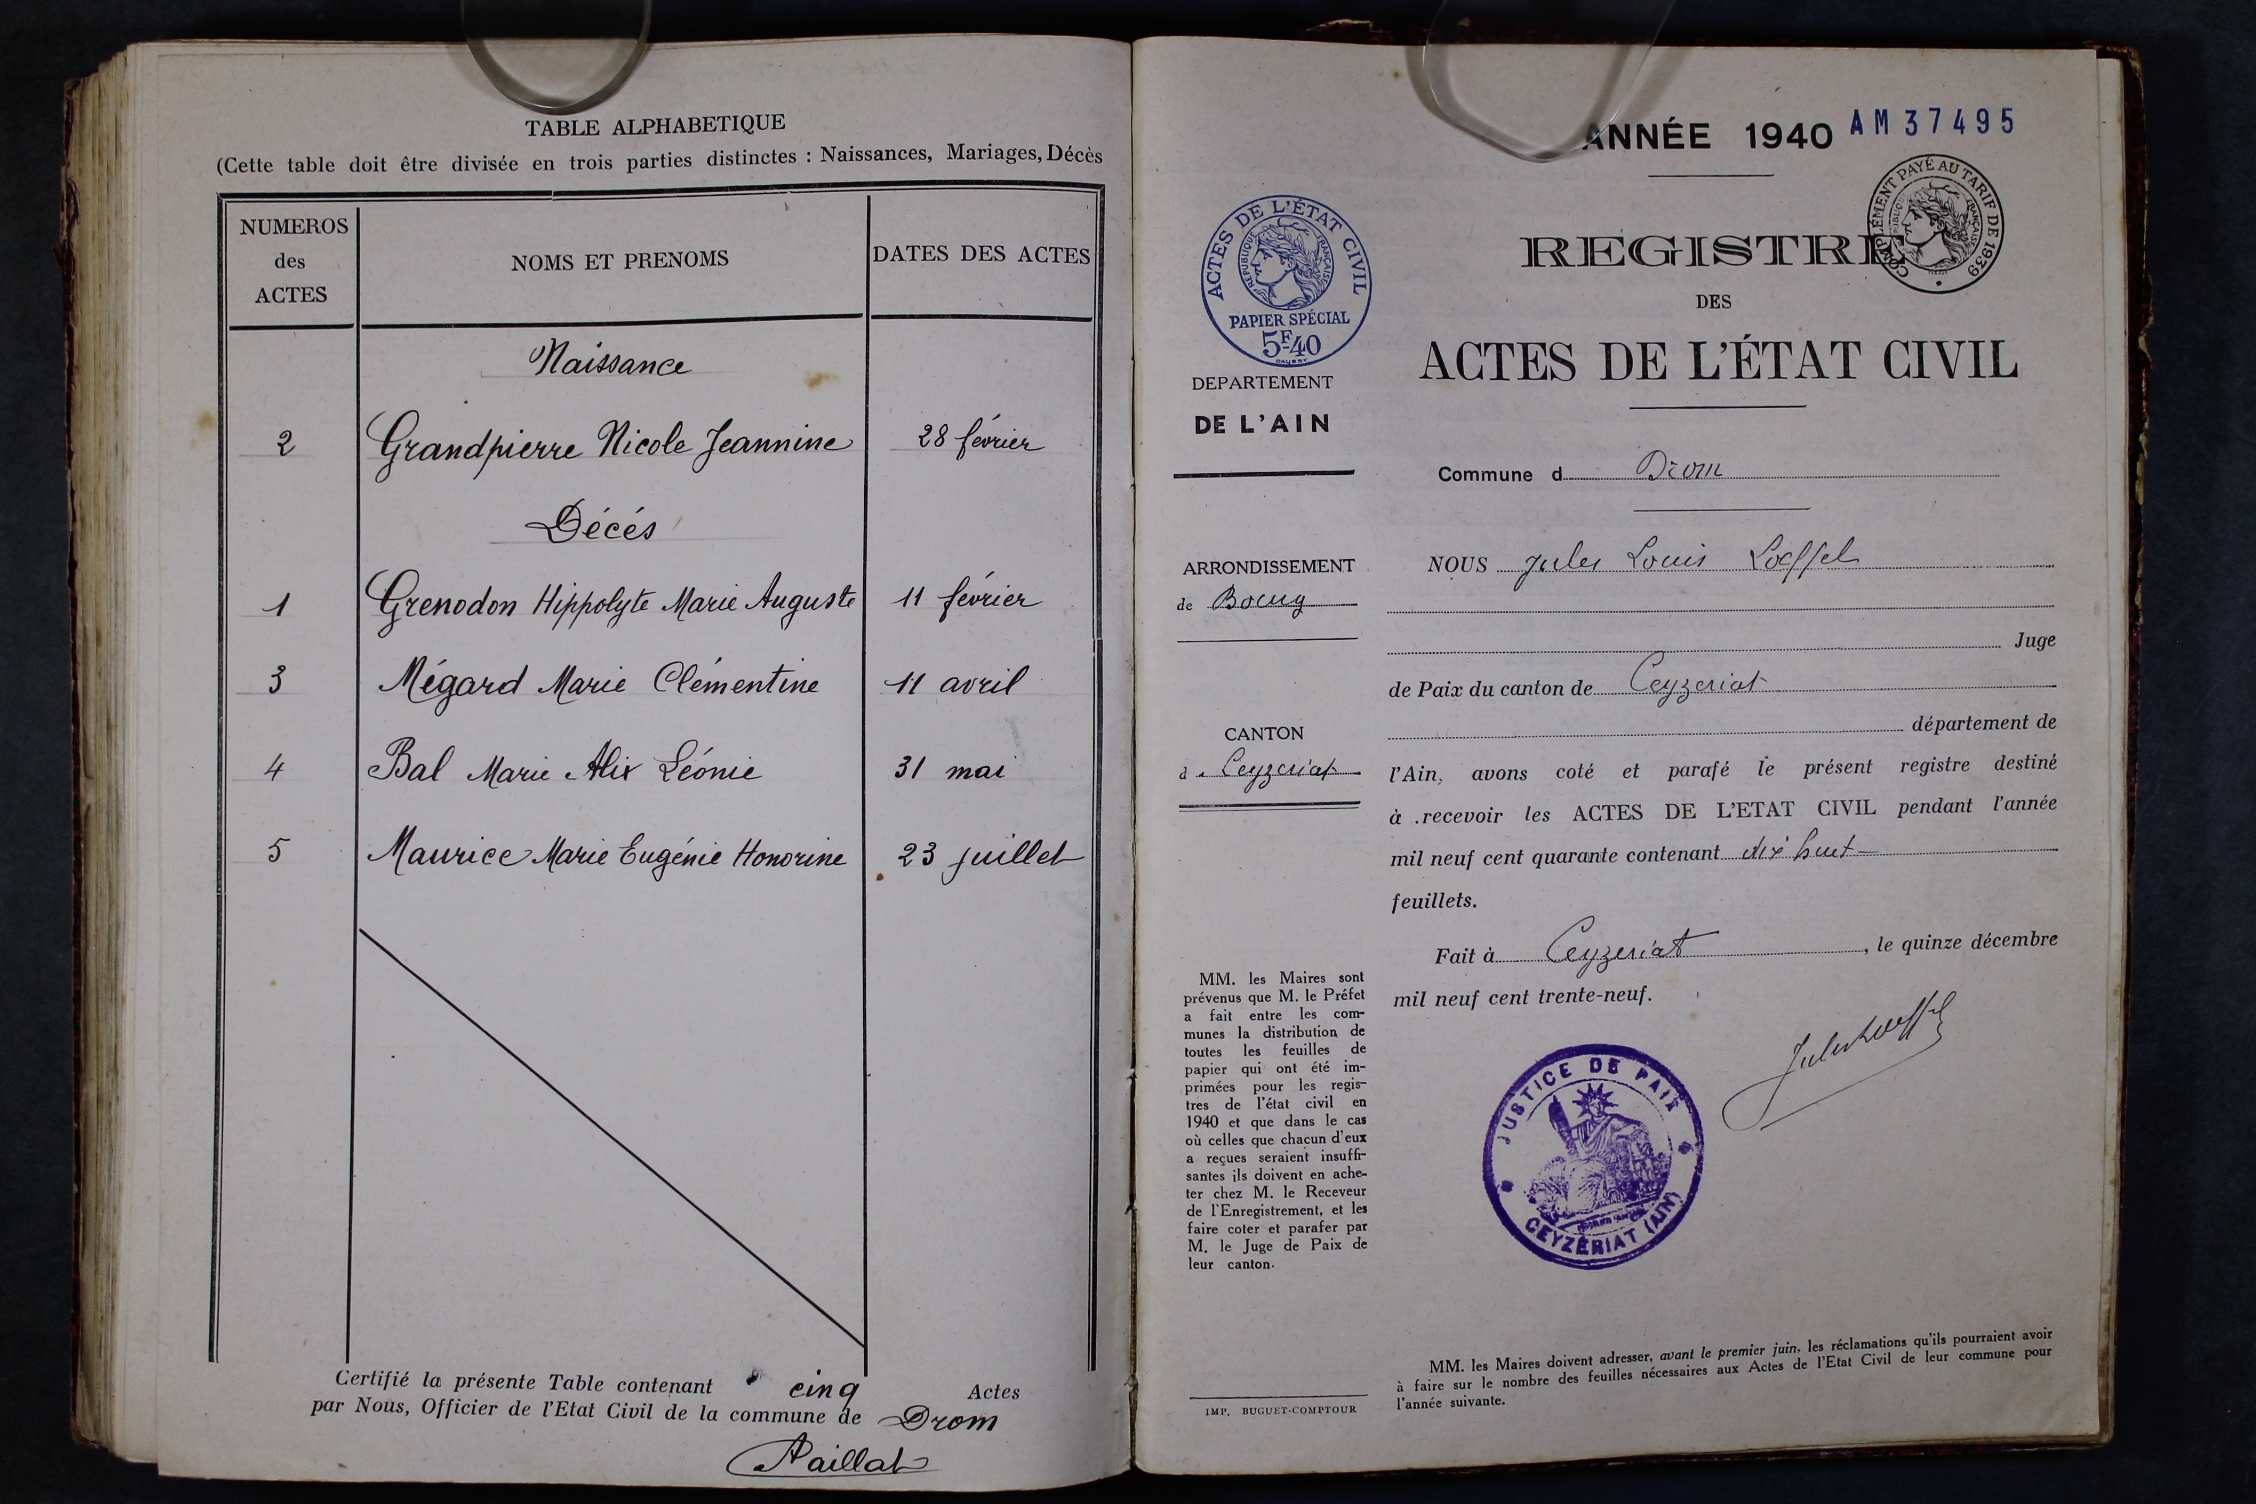 TABLE ALPHABETIQUE
(Cette table doit être divisée en trois parties distinctes : Naissances, Mariages, Décès
NUMEROS
des
ACTES
NOMS ET PRENOMS
DATES DES ACTES
Naissance
2 Grandpierre Nicole Jeannine 28 février
Décés
1 Grenodon Hippolyte Marie Auguste 11 février
3 Mégard Marie Clémentine 11 avril
4 Bal Marie Alix Léonie 31 mai
5 Maurice Marie Eugénie Honorine 23 juillet
Certifié la présente Table contenant cinq Actes
par Nous, Officier de l'Etat Civil de la commune de Drom
Paillat
ANNÉE 1940 AM 37495
COMPLÉMENT PAYÉ AU TARIF DE 1939
RÉPUBLIQUE FRANÇAISE
ACTES DE L'ÉTAT CIVIL
RÉPUBLIQUE FRANÇAISE
PAPIER SPÉCIAL
5F40
DAUSSY
REGISTRE
DES
ACTES DE L'ÉTAT CIVIL
DEPARTEMENT
DE L'AIN
Commune d Drom
ARRONDISSEMENT
de Bourg
CANTON
d. Ceyzeriat
NOUS Jules Louis Loeffel
Juge
de Paix du canton de Ceyzeriat
département de
l'Ain, avons coté et parafé le présent registre destiné
à recevoir les ACTES DE L'ETAT CIVIL pendant l'année
mil neuf cent quarante contenant dix huit
feuillets.
Fait à Ceyzeriat, le quinze décembre
mil neuf cent trente-neuf.
Jules Loeffel
JUSTICE DE PAIX
CEYZÉRIAT (AIN)
MM. les Maires sont
prévenus que M. le Préfet
a fait entre les com-
munes la distribution de
toutes les feuilles de
papier qui ont été im-
primées pour les regis-
tres de l'état civil en
1940 et que dans le cas
où celles que chacun d'eux
a reçues seraient insuffi-
santes ils doivent en ache-
ter chez M. le Receveur
de l'Enregistrement, et les
faire coter et parafer par
M. le Juge de Paix de
leur canton.
IMP. BUGUET-COMPTOUR
MM. les Maires doivent adresser, avant le premier juin, les réclamations qu'ils pourraient avoir
à faire sur le nombre des feuilles nécessaires aux Actes de l'Etat Civil de leur commune pour
l'année suivante.